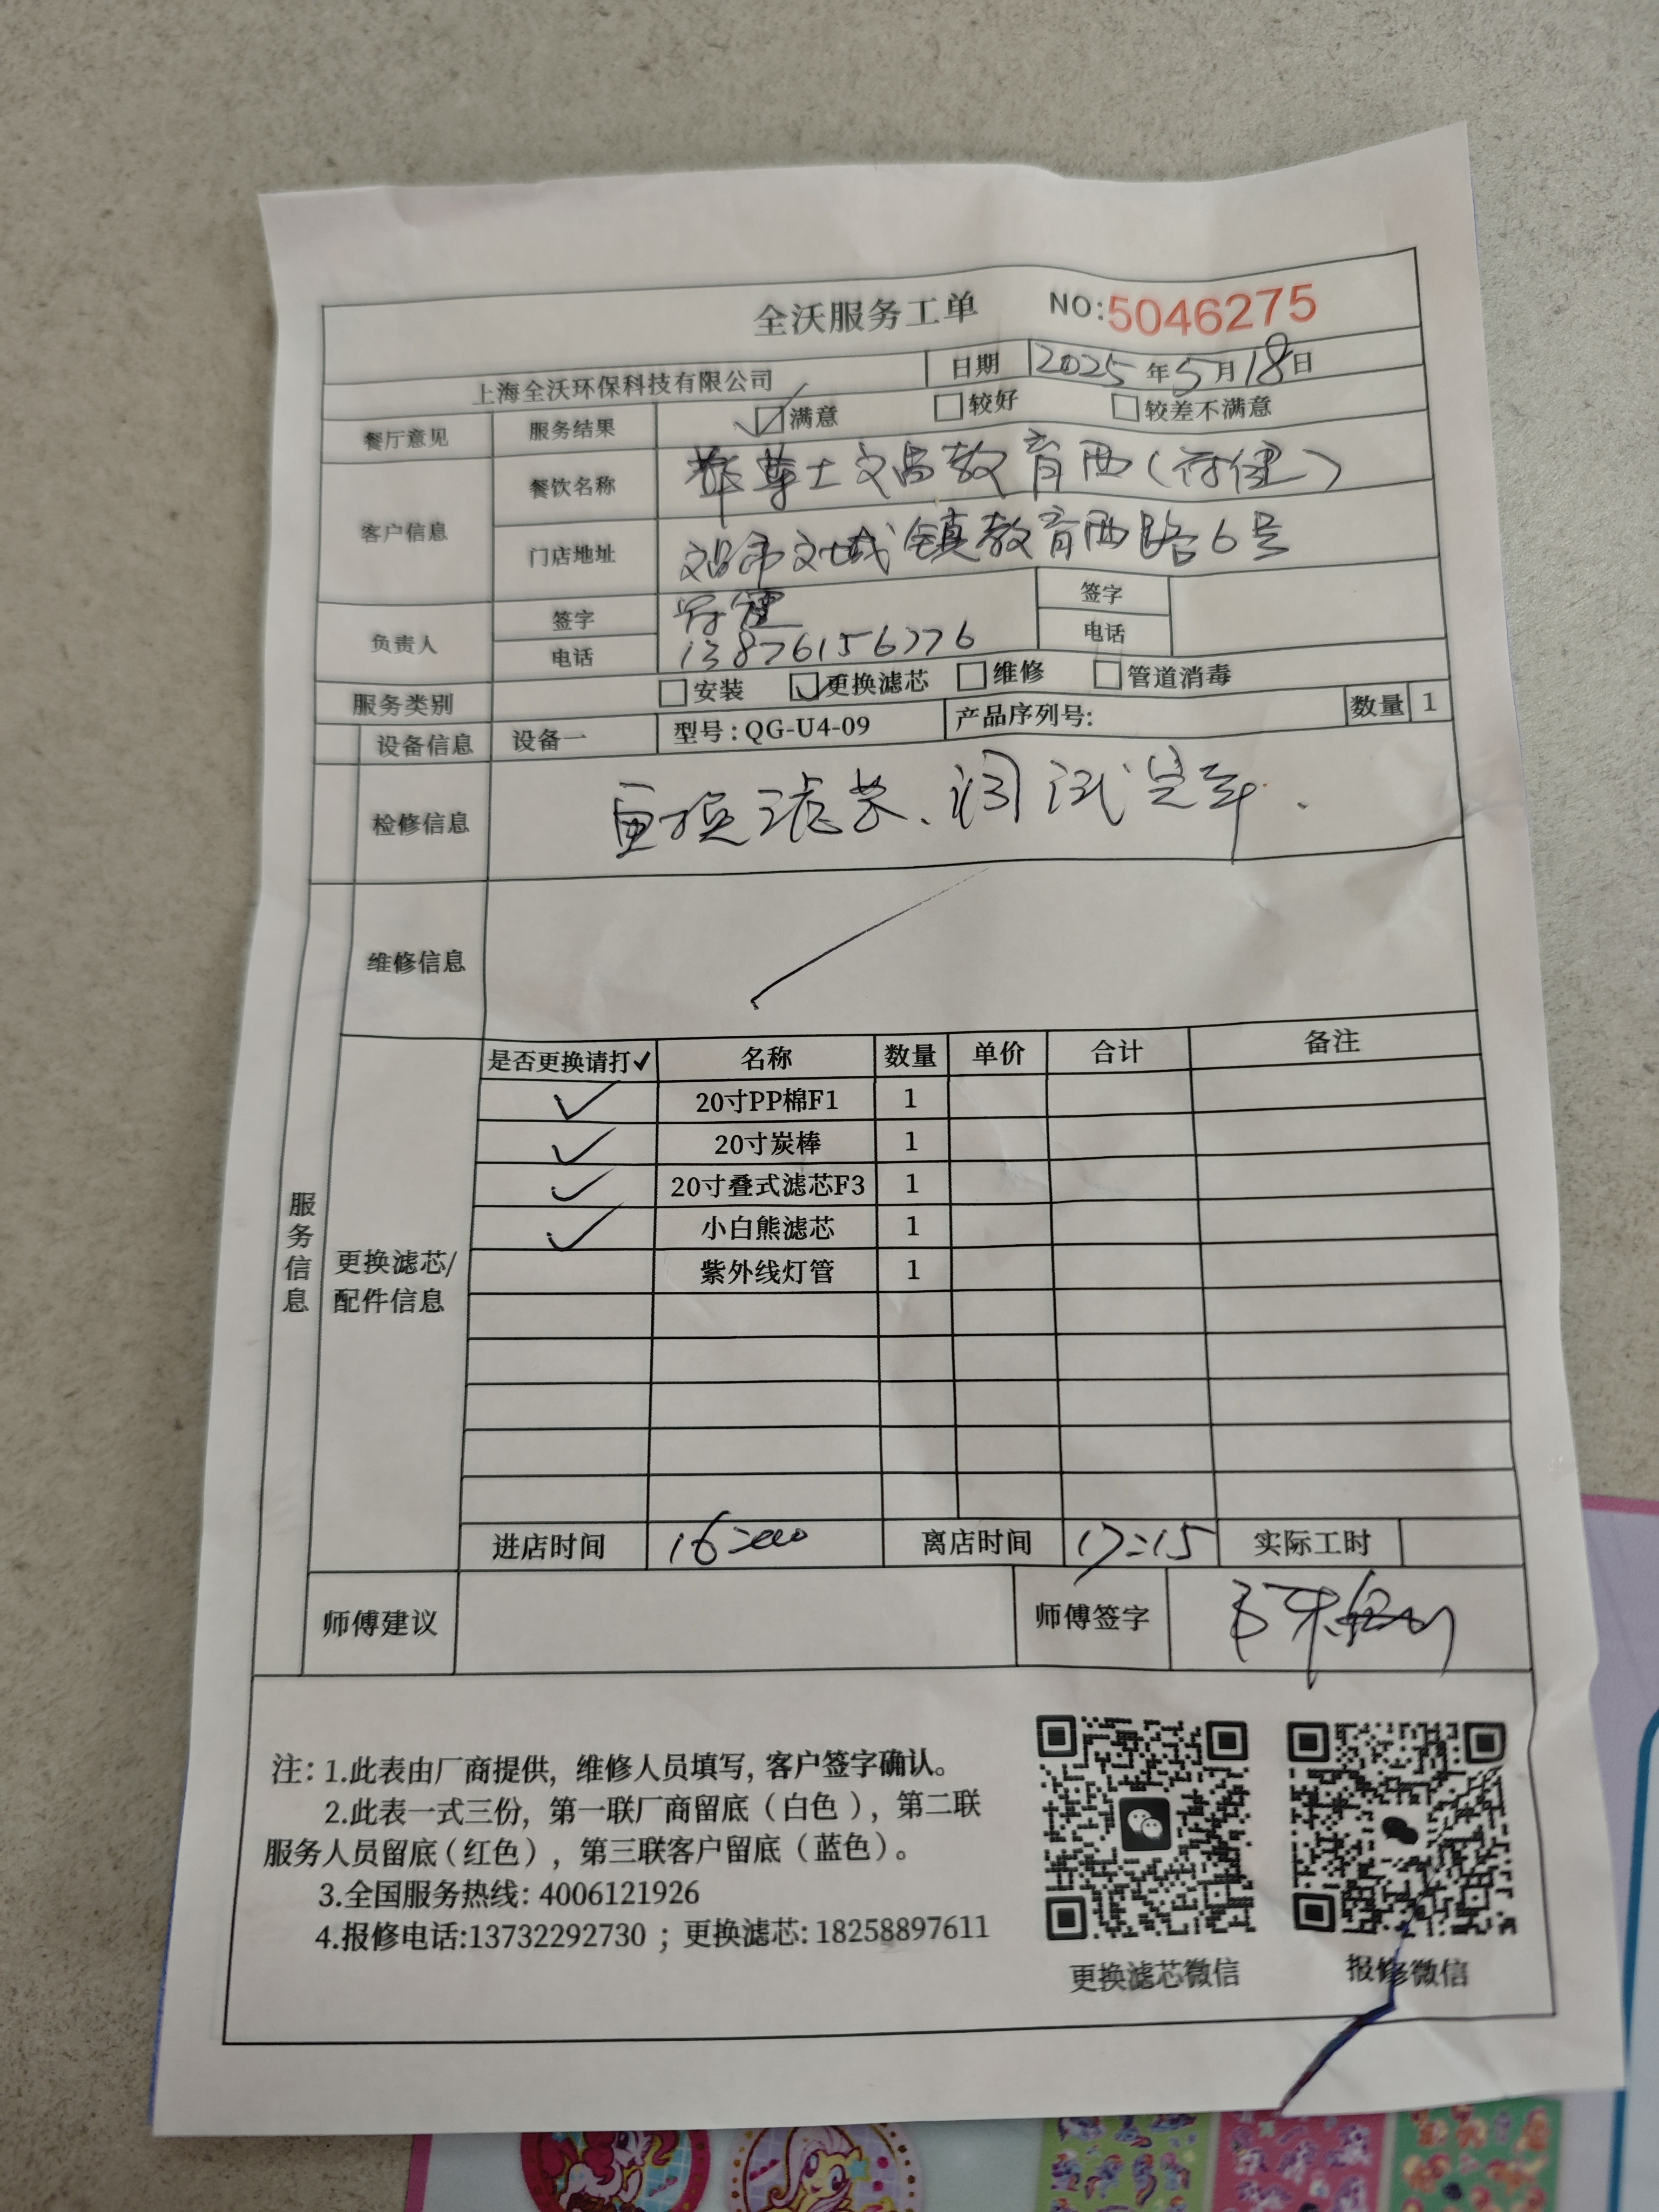 全沃服务工单 NO:5046275
上海全沃环保科技有限公司 日期 2025年5月18日
餐厅意见 服务结果 ☑满意 □较好 □较差不满意
客户信息 餐饮名称 尊士文昌教育西(符健)
门店地址 文昌市文城镇教育西路6号
负责人 签字 符健 签字
电话 13876156776 电话
服务类别 □安装 ☑更换滤芯 □维修 □管道消毒
设备信息 设备一 型号:QG-U4-09 产品序列号: 数量 1
检修信息 更换滤芯、调试完毕.
维修信息
服务信息
更换滤芯/配件信息
是否更换请打✓ 名称 数量 单价 合计 备注
✓ 20寸PP棉F1 1
✓ 20寸炭棒 1
✓ 20寸叠式滤芯F3 1
✓ 小白熊滤芯 1
紫外线灯管 1
进店时间 16:00 离店时间 17:15 实际工时
师傅建议 师傅签字
注: 1.此表由厂商提供, 维修人员填写, 客户签字确认。
2.此表一式三份, 第一联厂商留底(白色), 第二联
服务人员留底(红色), 第三联客户留底(蓝色)。
3.全国服务热线: 4006121926
4.报修电话:13732292730 ; 更换滤芯: 18258897611
更换滤芯微信 报修微信